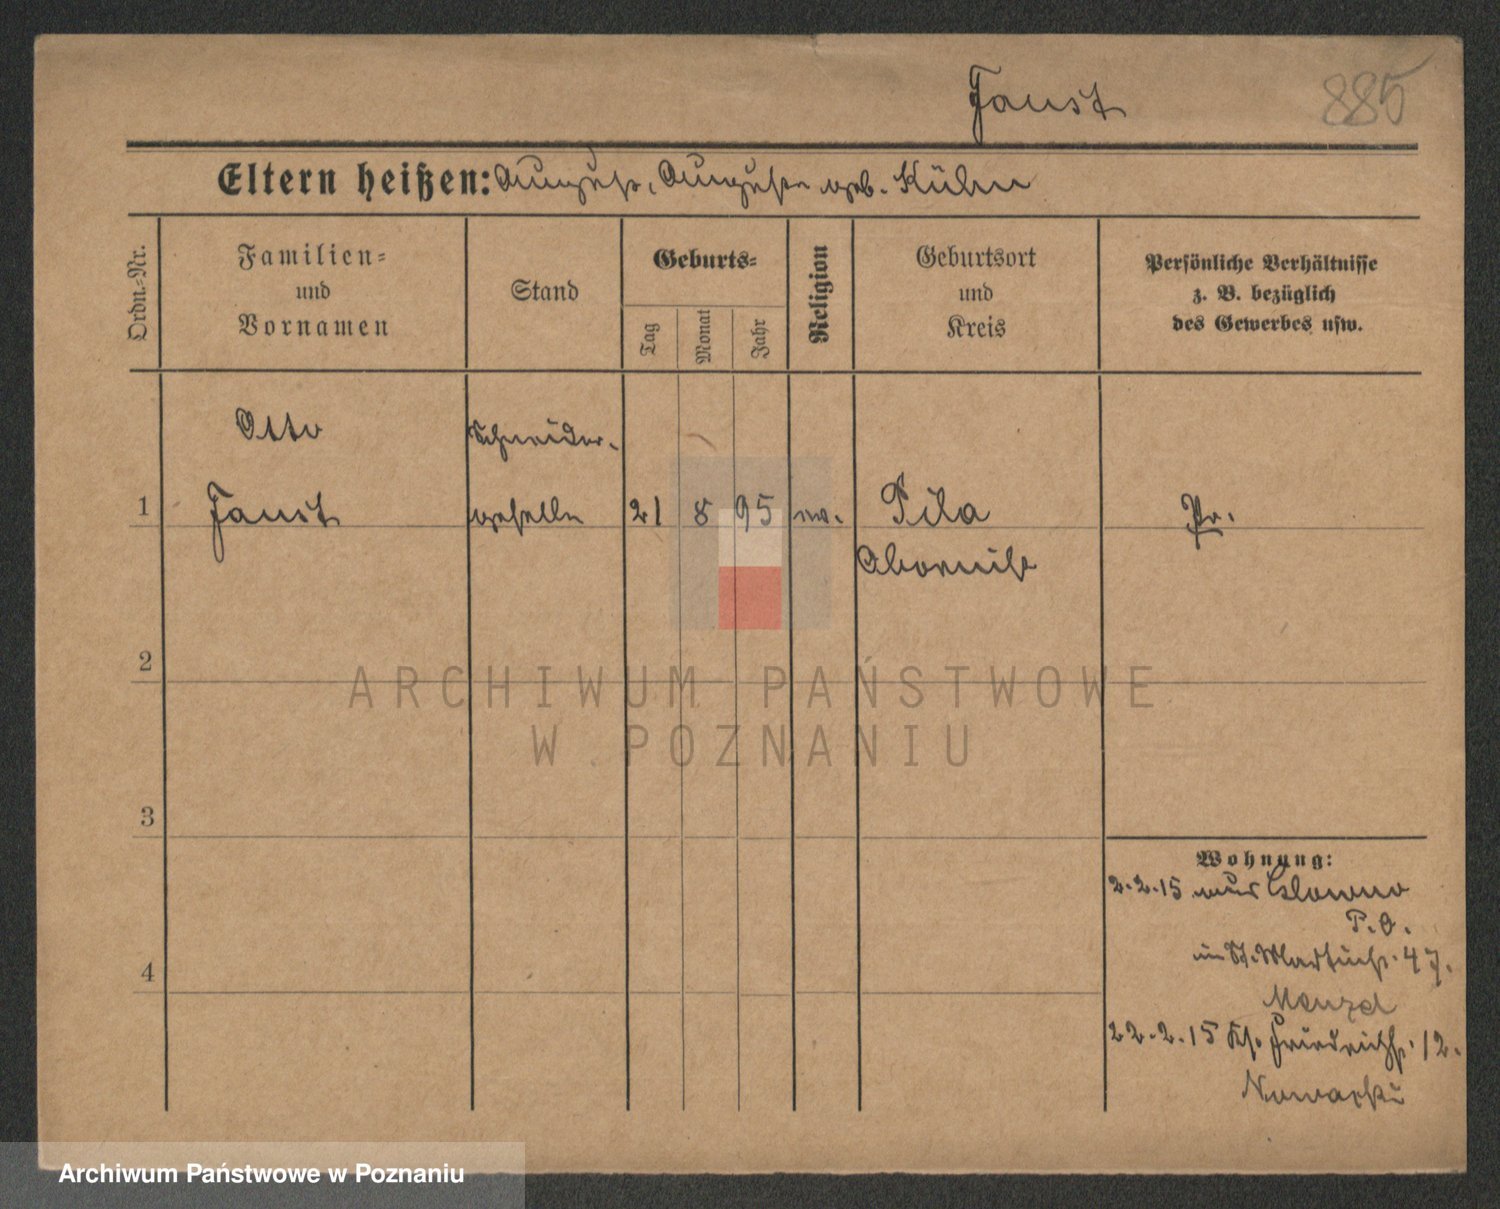 Faust
885
Eltern heißen: August, Auguste geb. Kühn
Ordn.-Nr.
Familien-
und
Vornamen
Stand
Geburts-
Tag
Monat
Jahr
Religion
Geburtsort
und
Kreis
Persönliche Verhältnisse
z. B. bezüglich
des Gewerbes usw.
Otto
Schneider-
1
Faust
geselle
21
8
95
ev.
Pila
Pr.
Obornik
2
3
4
Wohnung:
2.2.15 aus Glowno
P. O.
in St. Martinstr. 47.
Menzel
22.2.15 Friedrichstr. 12.
Nowacki
ARCHIWUM PAŃSTWOWE
W POZNANIU
Archiwum Państwowe w Poznaniu